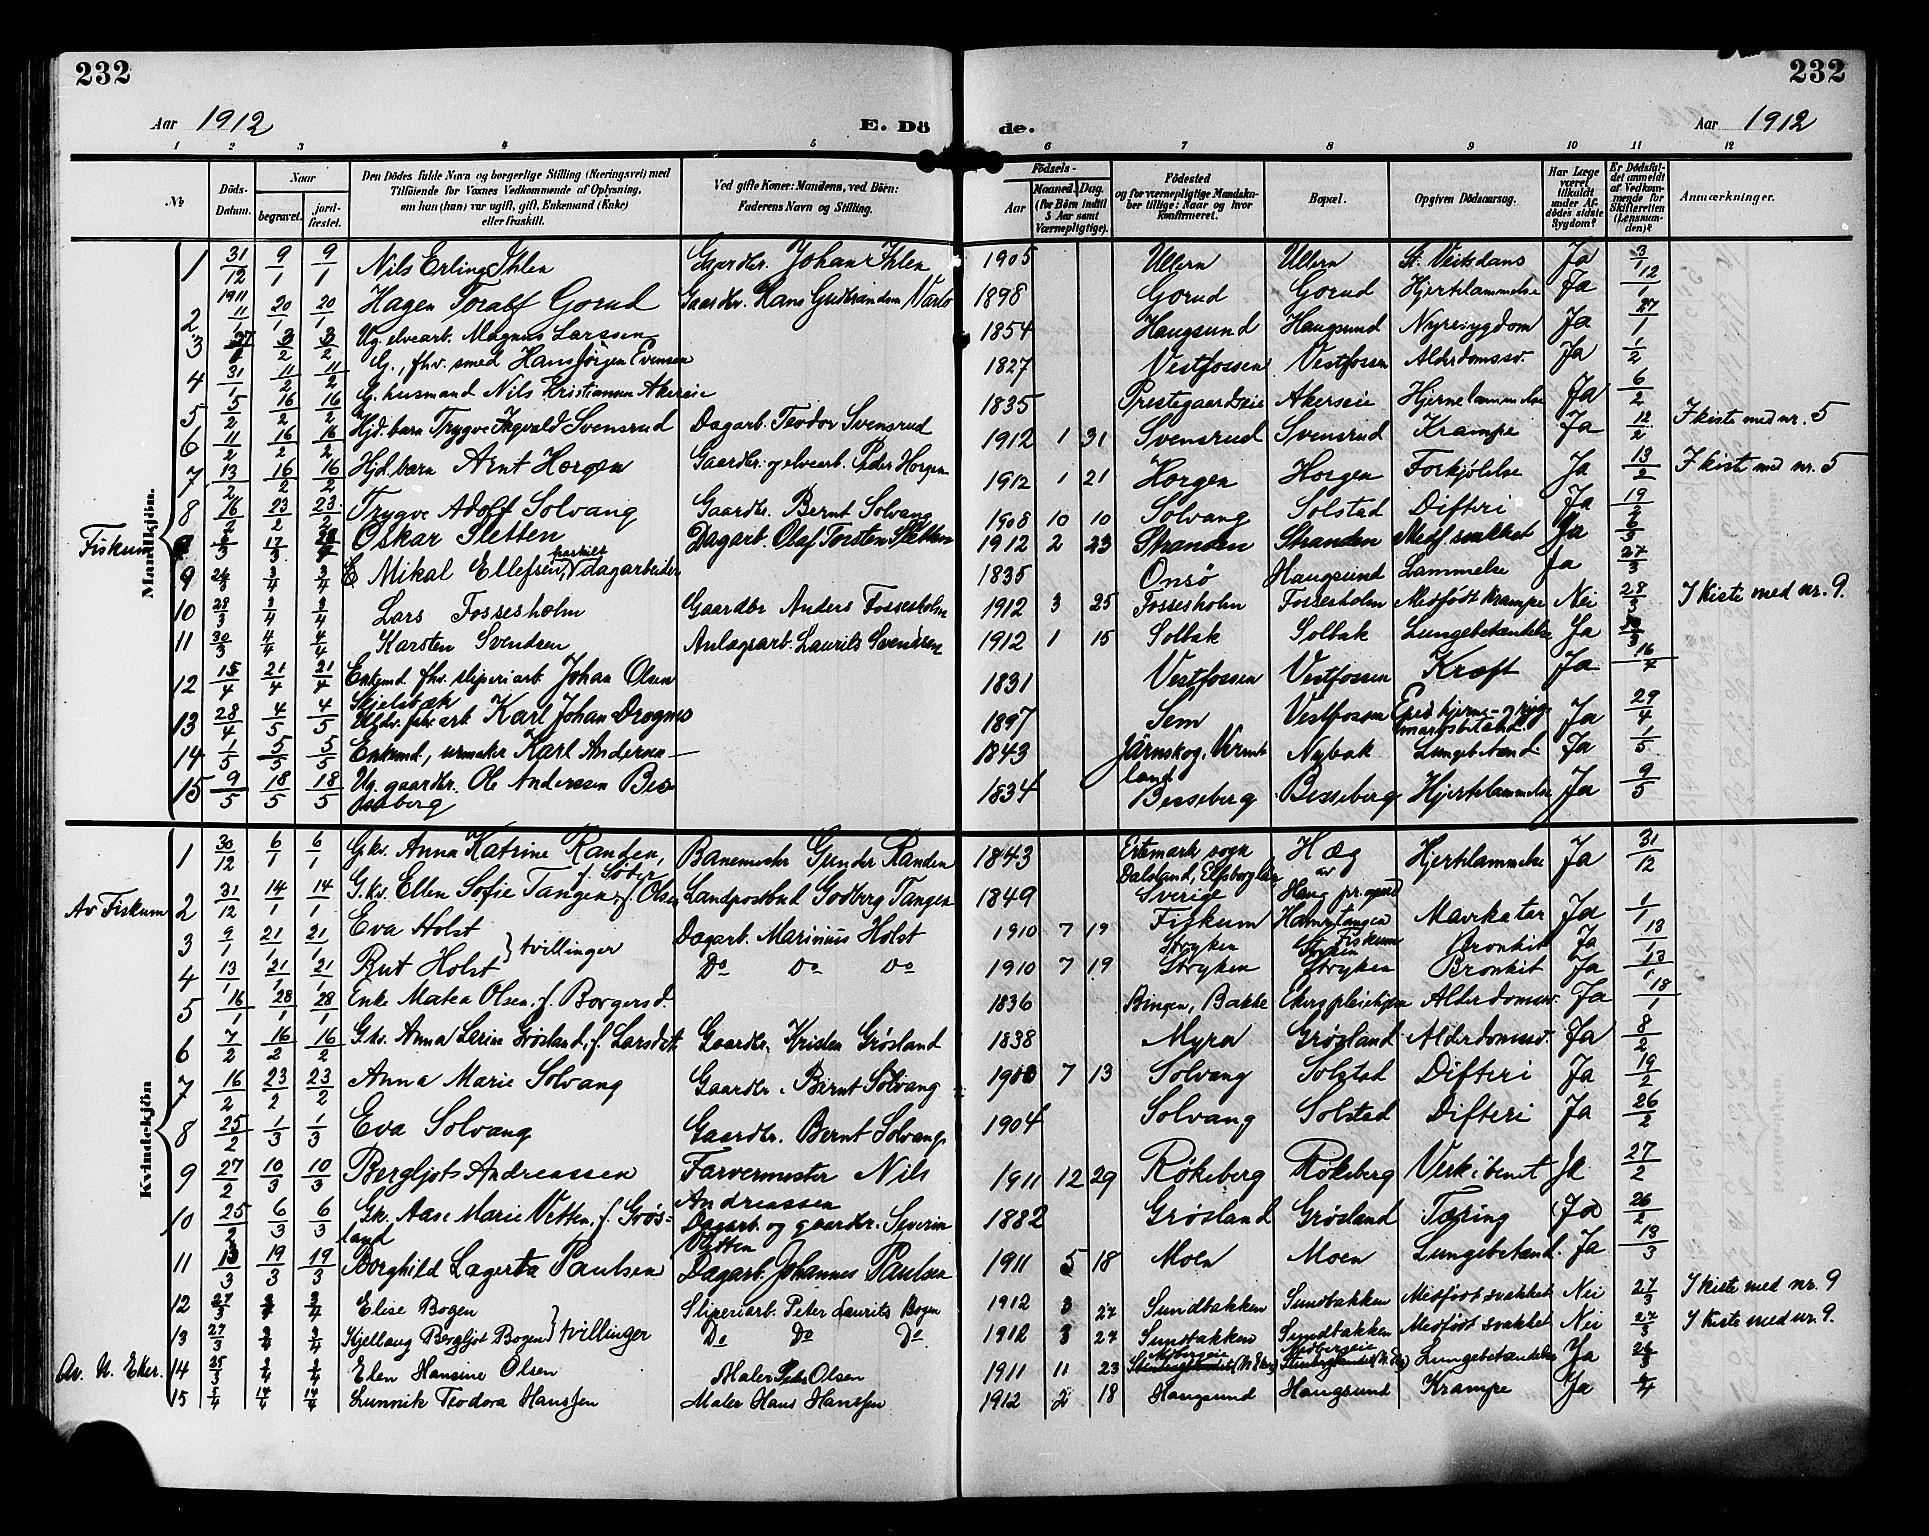 232
232
Aar 1912
E. Dö de.
Aar 1912
1 2 3 4 5 6 7 8 9 10 11 12
№
Döds-Datum.
Naar
begravet.
jordfæstet.
Den Dödes fulde Navn og borgerlige Stilling (Næringsvei) med
Tilföiende for Voxnes Vedkommende af Oplysning,
om hun (han) var ugift, gift, Enkemand (Enke)
eller fraskilt.
Ved gifte Koner: Mandens, ved Börn:
Faderens Navn og Stilling.
Födsels-
Aar
Maaned. Dag.
(for Börn indtil
5 Aar samt
Værnepligtige).
Födested
og for værnepligtige Mandskaber tillige: Naar og hvor
konfirmeret.
Bopæl.
Opgiven Dödsaarsag.
Har Læge
været
tilkaldt
under Afdödes sidste
Sygdom?
Er Dödsfaldet anmeldt
af Vedkommende for
Skifteretten
(Lensmanden)?
Anmærkninger.
Mandkjön.
Fiskum
1 31/12 1911 9/1 9/1 Nils Erling Ihlen Gaardbr. Johan Ihlen 1905 Ullern Ullern St. Veitsdans Ja 3/1
2 11/1 20/1 20/1 Hagen Toralf Gorud Gaardbr. Hans Gudbrandsen 1898 Gorud Gorud Hjertelammelse Ja 12/1
3 27/1 3/2 3/2 Ug. elvearb. Magnus Larssen 1854 Haugsund Haugsund Nyresygdom Ja 27/1
4 31/1 11/2 11/2 G., fhv. smed Hans Jörgen Evensen 1827 Vestfossen Vestfossen Alderdomssv. Ja 1/2
5 5/2 16/2 16/2 G. husmand Nils Kristiansen Akerseie 1835 Prestegaardseie Akerseie Hjernelammelse Ja 6/2
6 11/2 16/2 16/2 Hjd. barn Trygve Ingvald Svensrud Dagarb. Teodor Svensrud 1912 1 31 Svensrud Svensrud Krampe Ja 12/2 I kiste med nr. 5
7 13/2 16/2 16/2 Hjd. barn Arnt Horgen Gaardbr. og elvearb. Peder Horgen 1912 1 21 Horgen Horgen Forkjölelse Ja 13/2 I kiste med nr. 5
8 16/2 23/2 23/2 Trygve Adolf Solvang Gaardbr. Bernt Solvang 1908 10 10 Solvang Solstad Difteri Ja 19/2
17/3 Oskar Sletten Dagarb. Olaf Torsten Sletten 1912 2 23 Stranden Stranden Medf. svakhet Ja 6/3
9 3/4 3/4 E Mikal Ellefsen, dagarbeider 1835 Onsö Haugsund Lammelse Ja 27/3
10 28/3 3/4 3/4 Lars Fossesholm Gaardbr Anders Fossesholm 1912 3 25 Fossesholm Fossesholm Medfödt krampe Nei 28/3 I kiste med nr. 9
11 30/3 4/4 4/4 Karsten Svendsen Anlagsarb. Laurits Svendsen 1912 1 15 Solbak Solbak Lungebetændelse Ja
12 15/4 21/4 21/4 Enkemd. fhv. sliperiarb Johan Olsen
Skjelsbæk 1831 Vestfossen Vestfossen Kræft Ja 16/4
13 28/4 4/5 4/5 Karl Johan Drognes 1897 Sem Vestfossen Epid. hjerne- og rygmarvsbetænd. Ja 29/4
14 1/5 5/5 5/5 Enkemd., urmaker Karl Andersen 1843 Järnskog, Vermland Nybak Lungebetænd. Ja 1/5
15 9/5 18/5 18/5 Ug. gaardbr. Ole Anderssen Besseberg 1834 Besseberg Besseberg Hjertelammelse Ja 9/5
Kvindekjön
1 30/12 6/1 6/1 G.kv. Anna Katrine Randen, Banemester Gunder Randen 1843 Ertemark sogn
Dalsland, Elfsborg län
Sverige Hæg Hjertelammelse Ja 31/12
Av Fiskum 2 31/12 14/1 14/1 G.kv. Ellen Sofie Tangen, f. Olsen Landpostbud Godberg Tangen 1849 Fiskum Fiskum Mavekatar Ja 1/1
3 9/1 21/1 21/1 Eva Holst } tvillinger Dagarb. Marinius Holst 1910 7 19 Stryken Stryken Bronkit Ja 13/1
4 13/1 21/1 21/1 Rut Holst Do Do Do 1910 7 19 Stryken Stryken Bronkit Ja 13/1
5 16/1 28/1 28/1 Enke Matea Olsen, f. Borgersd. 1836 Bingen, Bakke Ekerspleiehjem Alderdomssv. Ja 18/1
6 7/2 16/2 16/2 G.kv. Anna Serine Grøsland, f. Larsdtr. Gaardbr. Kristen Grøsland 1838 Myra Grøsland Alderdomssv. Ja 8/2
7 16/2 23/2 23/2 Anna Marie Solvang Gaardbr. Bernt Solvang 7 13 Solvang Solstad Difteri Ja 19/2
8 25/2 1/3 1/3 Eva Solvang Gaardbr. Bernt Solvang 1904 Solvang Solstad Difteri Ja 26/2
9 27/2 10/3 10/3 Bergljot Andreassen Farvermester Nils
Andreassen 1911 12 29 Røkeberg Røkeberg Verk i benet Ja 27/2
10 25/2 6/3 6/3 Gk. Aase Marie Vetten, f. Grøsland Dagarb. og gaardbr. Severin
Vetten 1882 Grøsland Grøsland Tæring Ja 26/2
11 13/3 19/3 19/3 Borghild Lagerta Paulsen Dagarb. Johannes Paulsen 1911 5 18 Moen Moen Lungebetænd. Ja 13/3
12 27/3 3/4 Elise Bogen } tvillinger Sliperiarb. Peter Laurits Bogen 1912 3 27 Sundbakken Sundbakken Medfödt svakhet Nei 27/3 I kiste med nr. 9
13 27/3 3/4 Kjellaug Bergljot Bogen Do Do Do 1912 3 27 Sundbakken Sundbakken Medfödt svakhet Nei 27/3 I kiste med nr. 9.
Av N. Eker. 14 25/3 Elen Hansine Olsen Maler Olsen 1911 11 23 Lungebetændelse Ja 26/3
15 14/4 14/4 Teodora Hanssen Maler Hans Hanssen 1912 2 18 Haugsund Haugsund Krampe Ja